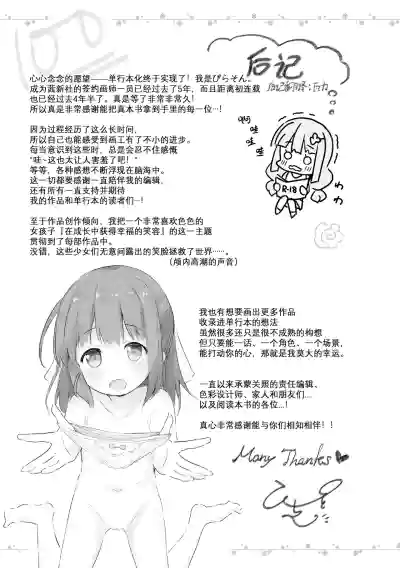 后记
心心念念的愿望——单行本化终于实现了！我是ぴらそん。
成为茜新社的签约画师一员已经过去了5年，而且距离初连载
也已经过去4年半了。真是等了非常非常久！
所以真是非常感谢能把本书拿到手里的每一位…！
因为过程经历了这么长时间，
所以自己也能感受到画工有了不小的进步。
每当意识到这些时，总是会忍不住感慨
"哇~这也太让人害羞了吧！"
等等，各种感想不断浮现在脑海中。
这一切都要感谢一直陪伴我的编辑，
还有所有一直支持并期待
我的作品和单行本的读者们…！
至于作品创作倾向，我把一个非常喜欢色色的
女孩子『在成长中获得幸福的笑容』的这一主题
贯彻到了每部作品中。
没错，这些少女们无意间露出的笑脸拯救了世界……。
（颅内高潮的声音）
啊哇哇
R-18
わわ
我也有想要画出更多作品
收录进单行本的想法
虽然很多还只是很不成熟的构想
但只要能一话、一个角色、一个场景，
能打动你的心，那就是我莫大的幸运。
一直以来承蒙关照的责任编辑、
色彩设计师、家人和朋友们…
以及阅读本书的各位…！
真心非常感谢能与你们相知相伴！！
Many Thanks